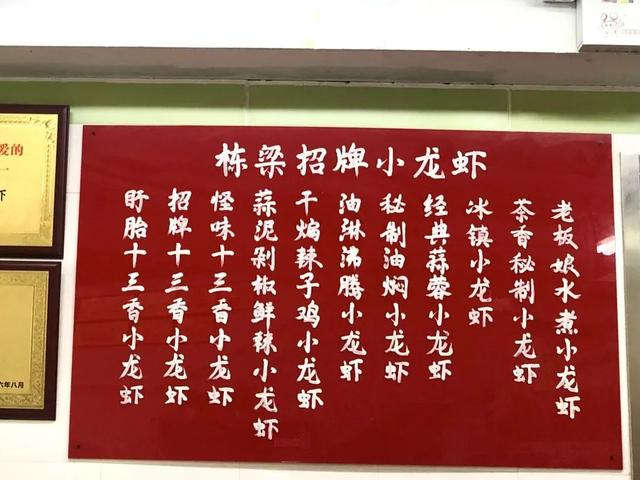 栋梁招牌小龙虾
老板娘水煮小龙虾
茶香秘制小龙虾
冰镇小龙虾
经典蒜蓉小龙虾
秘制油焖小龙虾
油淋沸腾小龙虾
干煸辣子鸡小龙虾
蒜泥剁椒鲜辣小龙虾
怪味十三香小龙虾
招牌十三香小龙虾
盱眙十三香小龙虾
爱的
六年八月